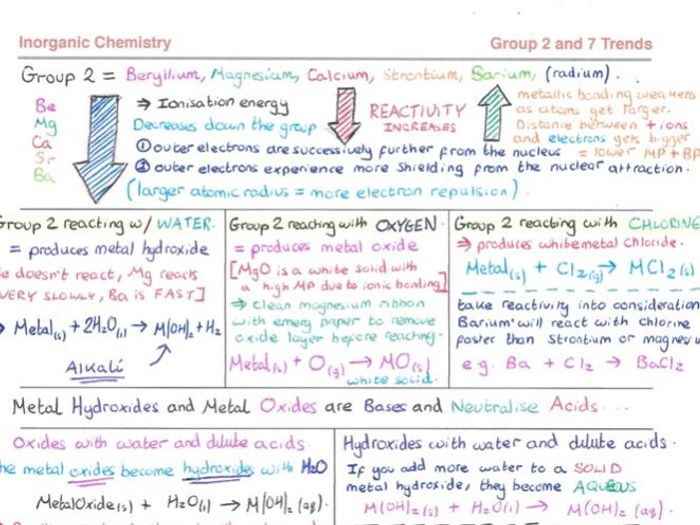 Inorganic Chemistry
Group 2 and 7 Trends
Group 2 = Beryllium, Magnesium, Calcium, Strontium, Barium, (radium).
Be
Mg
Ca
Sr
Ba
⇒ Ionisation energy
Decreases down the group
REACTIVITY
INCREASES
metallic bonding weakens
as atoms get larger.
Distance between + ions
and electrons gets bigger
= lower MP + BP
① outer electrons are successively further from the nucleus
② outer electrons experience more shielding from the nuclear attraction.
(larger atomic radius = more electron repulsion).
Group 2 reacting w/ WATER.
= produces metal hydroxide
doesn't react, Mg reacts
VERY SLOWLY, Ba is FAST]
→ Metal(s) + 2H₂O(l) → M(OH)₂ + H₂
Alkali
Group 2 reacting with OXYGEN
= produces metal oxide
[MgO is a white solid with
a high MP due to ionic bonding]
⇒ clean magnesium ribbon
with emery paper to remove
oxide layer before reacting.
Metal(s) + O(g) → MO(s)
white solid.
Group 2 reacting with CHLORINE
⇒ produces white metal chloride.
Metal(s) + Cl₂(g) → MCl₂(s)
take reactivity into consideration
Barium will react with chlorine
faster than strontium or magnesiu
e.g. Ba + Cl₂ → BaCl₂
Metal Hydroxides and Metal Oxides are Bases and Neutralise Acids....
Oxides with water and dilute acids.
he metal oxides become hydroxides with H₂O
Metal Oxide(s) + H₂O(l) → M(OH)₂ (aq).
Hydroxides with water and dilute acids.
If you add more water to a SOLID
metal hydroxide, they become AQUEOUS
M(OH)₂(s) + H₂O(l) → M(OH)₂(aq).